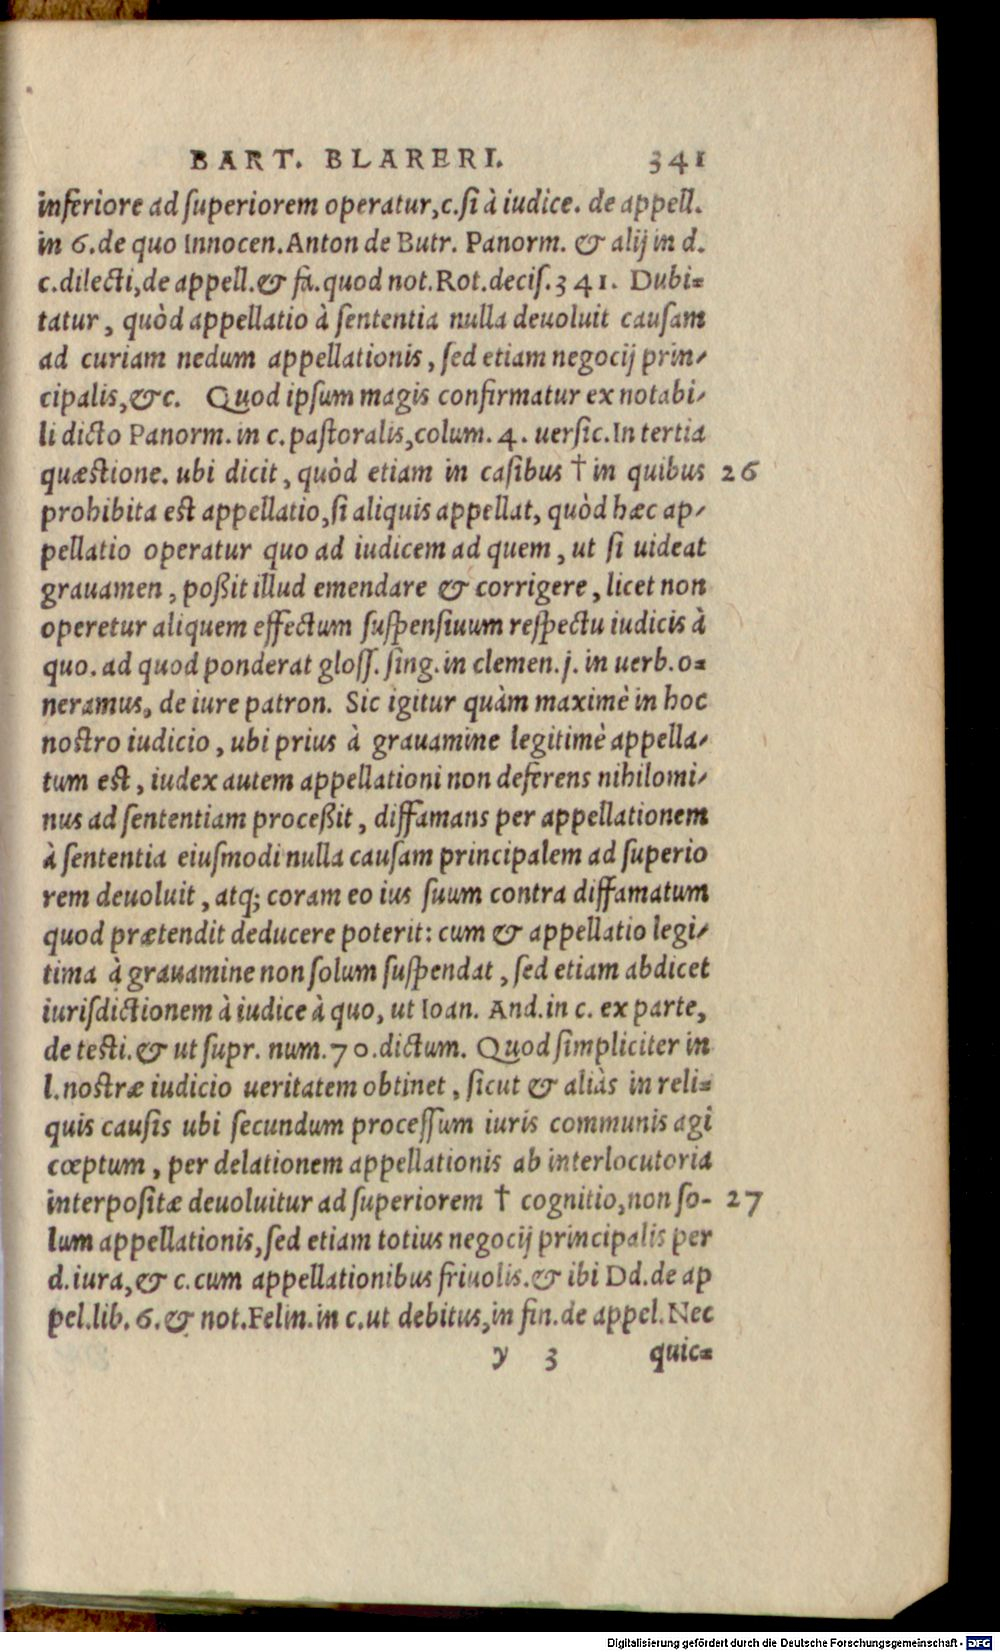 BART. BLARERI. 341
inferiore ad ſuperiorem operatur, c. ſi à iudice. de appell.
in 6. de quo Innocen. Anton de Butr. Panorm. & alij in d.
c. dilecti, de appell. & fa. quod not. Rot. deciſ. 341. Dubi-
tatur, quòd appellatio à ſententia nulla deuoluit cauſam
ad curiam nedum appellationis, ſed etiam negocij prin-
cipalis, &c. Quod ipſum magis confirmatur ex notabi-
li dicto Panorm. in c. paſtoralis, colum. 4. uerſic. In tertia
quæſtione. ubi dicit, quòd etiam in caſibus † in quibus 26
prohibita eſt appellatio, ſi aliquis appellat, quòd hæc ap-
pellatio operatur quo ad iudicem ad quem, ut ſi uideat
grauamen, poßit illud emendare & corrigere, licet non
operetur aliquem effectum ſuſpenſiuum reſpectu iudicis à
quo. ad quod ponderat gloſſ. ſing. in clemen. j. in uerb. o-
neramus, de iure patron. Sic igitur quàm maximè in hoc
noſtro iudicio, ubi prius à grauamine legitimè appella-
tum eſt, iudex autem appellationi non deferens nihilomi-
nus ad ſententiam proceßit, diffamans per appellationem
à ſententia eiuſmodi nulla cauſam principalem ad ſuperio
rem deuoluit, atq; coram eo ius ſuum contra diffamatum
quod prætendit deducere poterit: cum & appellatio legi-
tima à grauamine non ſolum ſuſpendat, ſed etiam abdicet
iuriſdictionem à iudice à quo, ut Ioan. And. in c. ex parte,
de teſti. & ut ſupr. num. 70. dictum. Quod ſimpliciter in
l. noſtræ iudicio ueritatem obtinet, ſicut & aliàs in reli-
quis cauſis ubi ſecundum proceſſum iuris communis agi
cœptum, per delationem appellationis ab interlocutoria
interpoſitæ deuoluitur ad ſuperiorem † cognitio, non ſo- 27
lum appellationis, ſed etiam totius negocij principalis per
d. iura, & c. cum appellationibus friuolis. & ibi Dd. de ap
pel. lib. 6. & not. Felin. in c. ut debitus, in fin. de appel. Nec
y 3 quic-
Digitalisierung gefördert durch die Deutsche Forschungsgemeinschaft - DFG